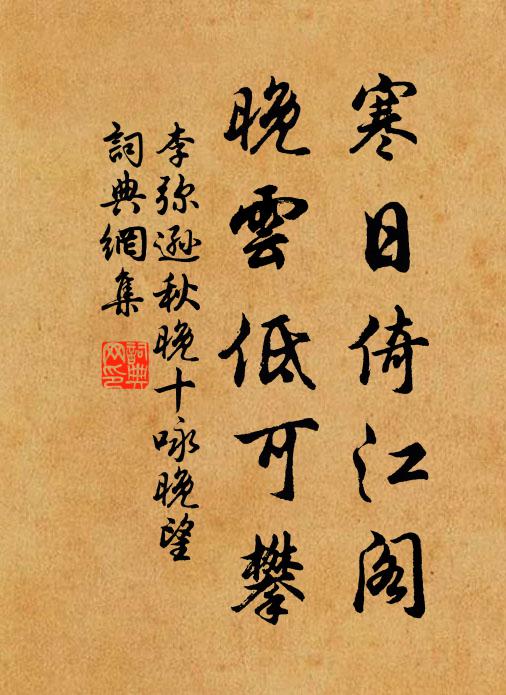 寒日倚江阁
晚雲低可攀
李弥遜秋晚十咏晚望
詞典網集
詞典網印